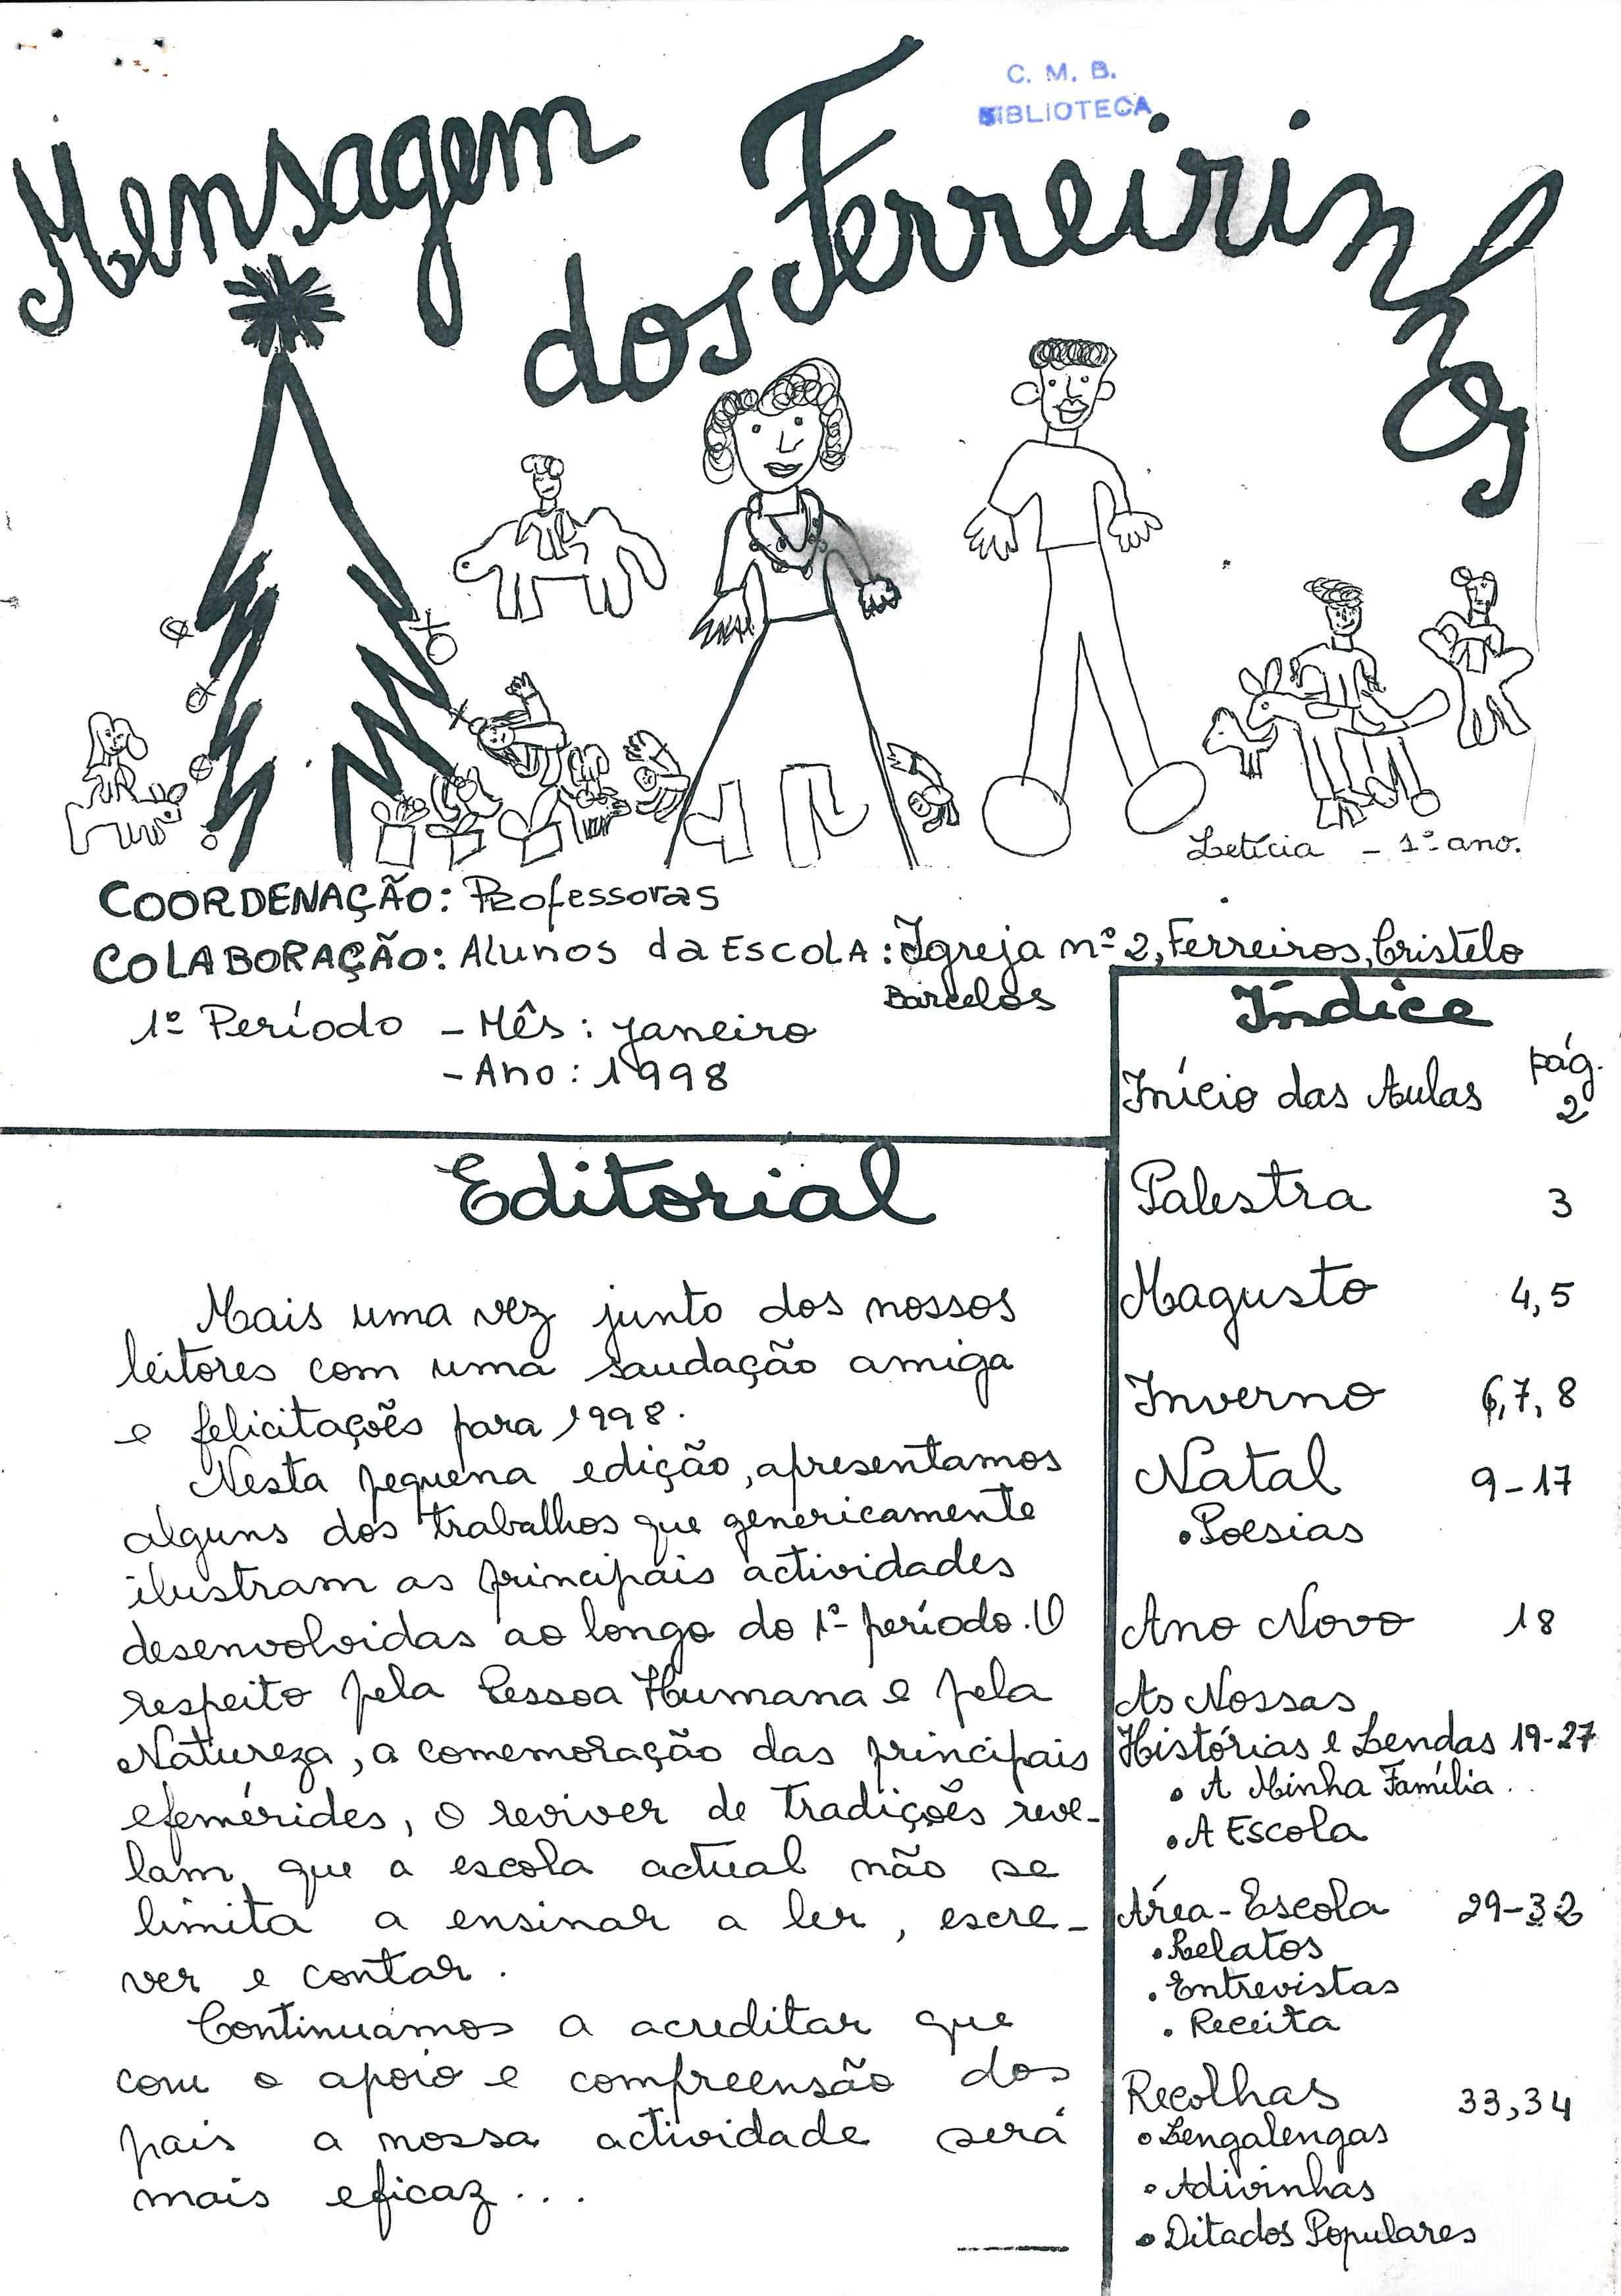 C. M. B.
BIBLIOTECA
Mensagem
dos Ferreirinhos
Letícia - 1º ano.
COORDENAÇÃO: Professoras
COLABORAÇÃO: Alunos da Escola: Igreja nº 2, Ferreiros, Cristelo
Barcelos
1º Período - Mês: Janeiro
- Ano: 1998
Editorial
Mais uma vez junto dos nossos
leitores com uma saudação amiga
e felicitações para 1998.
Nesta pequena edição, apresentamos
alguns dos trabalhos que genericamente
ilustram as principais actividades
desenvolvidas ao longo do 1º período. O
respeito pela Pessoa Humana e pela
Natureza, a comemoração das principais
efemérides, o reviver de tradições reve-
lam que a escola actual não se
limita a ensinar a ler, escre-
ver e contar.
Continuamos a acreditar que
com o apoio e compreensão dos
pais a nossa actividade será
mais eficaz...
Índice
pág.
Início das Aulas 2
Palestra 3
Magusto 4,5
Inverno 6,7,8
Natal 9-17
• Poesias
Ano Novo 18
As Nossas
Histórias e Lendas 19-27
• A Minha Família
• A Escola
Área-Escola 29-32
• Relatos
• Entrevistas
• Receita
Recolhas 33,34
• Lengalengas
• Adivinhas
• Ditados Populares